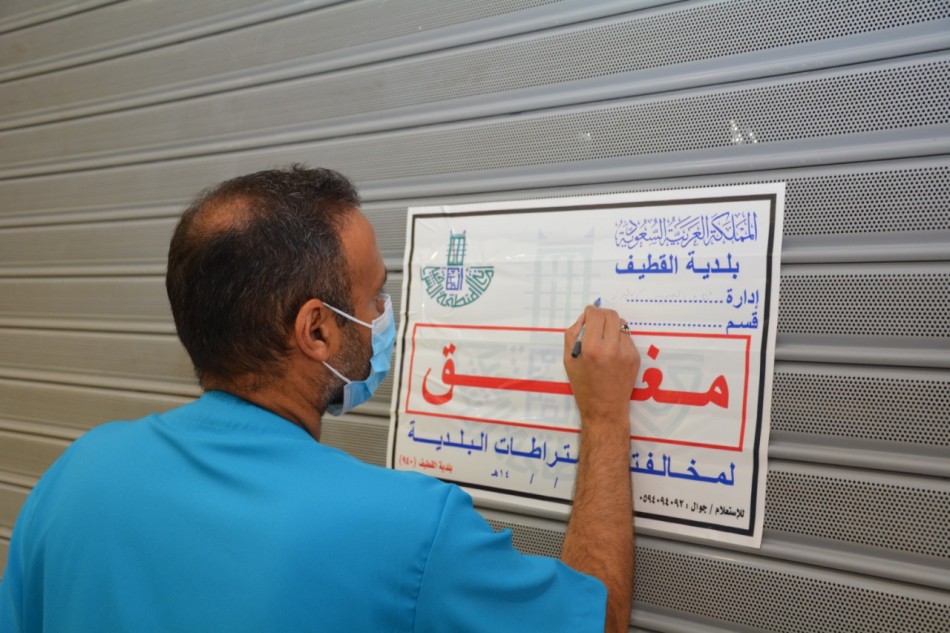 المملكة العربية السعودية
بلدية القطيف
إدارة
قسم
مغلق
لمخالفت ـتراطات البلدية
/ / ١٤هـ
بلدية القطيف (٩٤٠)
للإستعلام / جوال : ٠٥٩٤٠٩٤٠٩٢